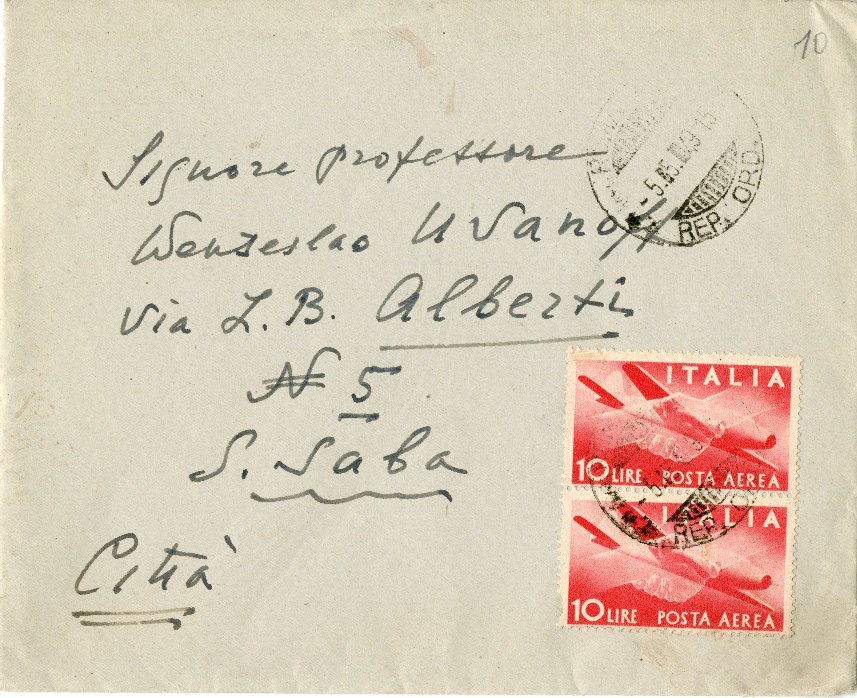 10
Signore professore
Wenzeslao Uvanoff
via L. B. Alberti
N 5
S. Saba
Città
- 5.
49-15
REP. ORD.
ITALIA
10 LIRE POSTA AEREA
ITALIA
10 LIRE POSTA AEREA
REP. O